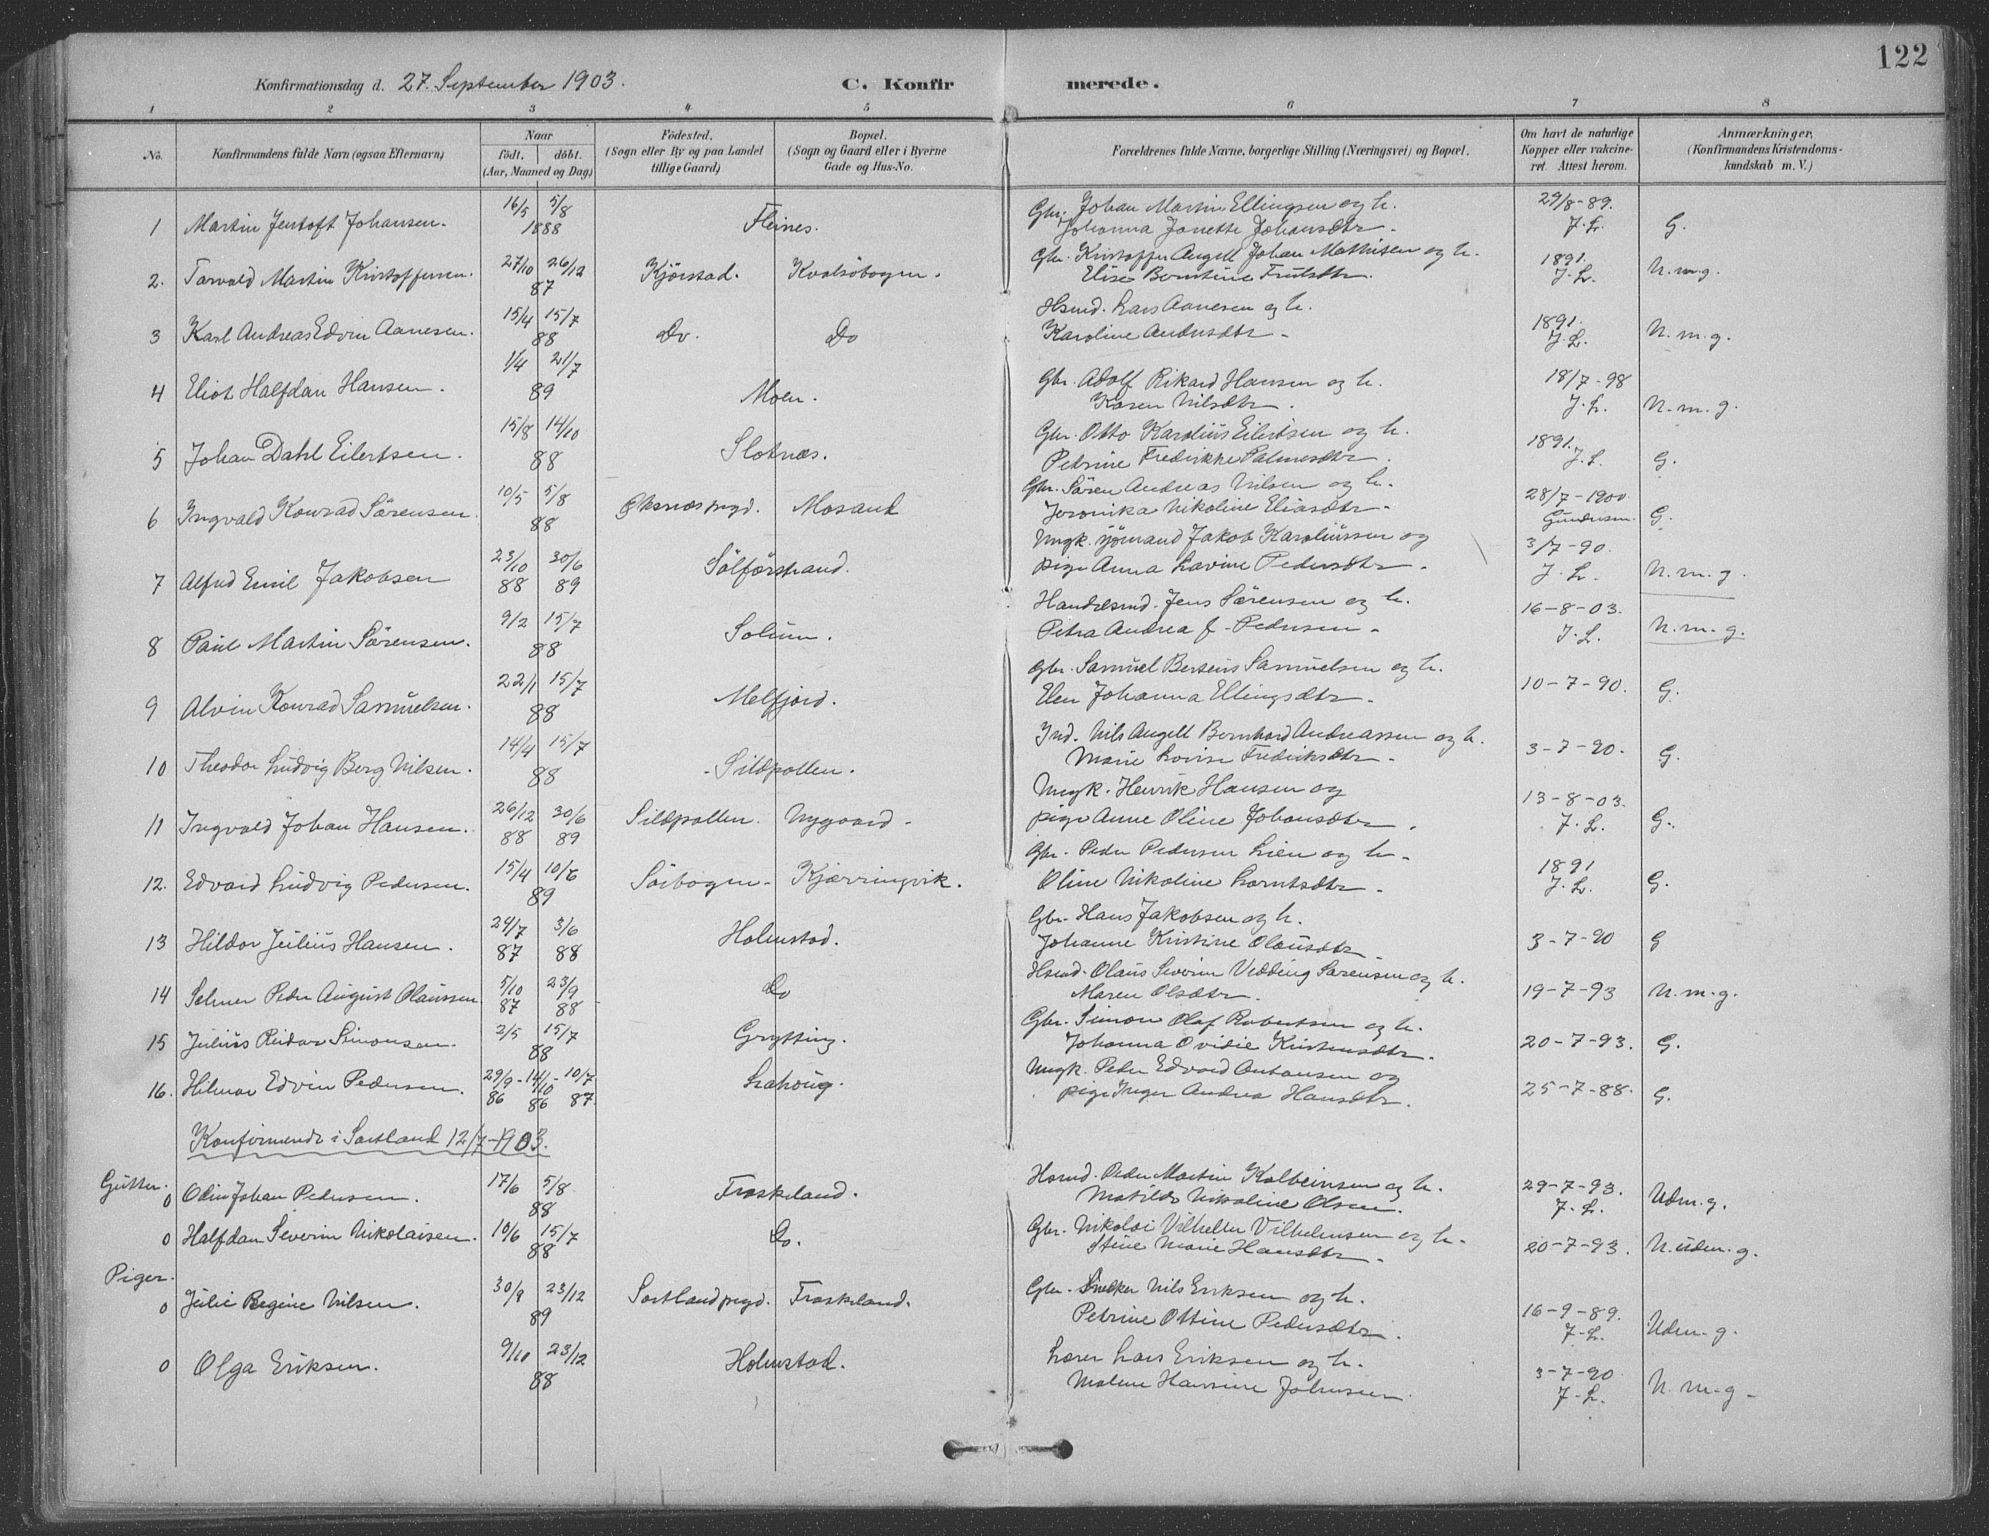 122
Konfirmationsdag d. 27. September 1903.
C. Konfirmerede.
1 2 3 4 5 6 7 8
No.
Konfirmandens fulde Navn (ogsaa Efternavn)
Naar
födt. döbt.
(Aar, Maaned og Dag)
Födested.
(Sogn eller By og paa Landet
tillige Gaard)
Bopæl.
(Sogn og Gaard eller i Byerne
Gade og Hus-No.
Forældrenes fulde Navne, borgerlige Stilling (Næringsvei) og Bopæl.
Om havt de naturlige
Kopper eller vakcine-
ret. Attest herom.
Anmærkninger,
(Konfirmandens Kristendoms-
kundskab m. V.)
1 Martin Jentoft Johansen. 16/5 5/8 1888 Fleines. Gbr. Johan Martin Ellingsen og h.
Johanna Janette Johansdtr. 29/8-89. J. L. G.
2. Torvald Martin Kristoffersen. 27/10 26/12 87 Kjørstad. Kvalsöbogen. Gbr. Kristoffer Angell Johan Mathisen og h.
Elise Berntine 1891. J. L. N. m. g.
3 Karl Andreas Edvin Aanesen. 15/4 15/7 88 Do. Do Hsmd. Lars Aanesen og h.
Karoline Andersdtr. 1891. J. L. N. m. g.
4 Eliot Halfdan Hansen. 1/4 21/7 89 Moen. Gbr. Adolf Rikard Hansen og h.
Karen Nilsdtr. 18/7-98 J. L. N. m. g.
5 Johan Dahl Eilertsen. 15/8 14/10 88 Slotnæs. Gbr. Otto Karolius Eilertsen og h.
Petrine Fredrikke 1891. J. L. G.
6 Ingvald Konrad Sörensen. 10/5 5/8 88 Øksnæs prgd. Mosand Gbr. Sören Andreas Nilsen og h.
Jeronika Nikoline Eliasdtr. 28/7-1900 Gundersen. G.
7 Alfred Emil Jakobsen 23/10 88 30/6 89 Sölförstrand. Ungk. Jakob Karoliussen og
pige Anna Lavine Pedersdtr. 3/7-90. J. L. N. m. g.
8 Paul Martin Sörensen. 9/2 15/7 88 Solum. Handelsmd. Jens Sörensen og h.
Petra Andrea f. Pedersen. 16-8-03. J. L. N. m. g.
9 Alvin Konrad Samuelsen. 22/1 15/7 88 Melfjord. Gbr. Samuel Berteus Samuelsen og h.
Elen Johanna Ellingsdtr. 10-7-90. G.
10 Theodor Ludvig Berg Nilsen. 14/4 15/7 88 Sildpollen. Ind. Nils Angell Bernhard Andreassen og h.
Marie Lovise Fredriksdtr. 3-7-90. G.
11 Ingvald Johan Hansen. 26/12 88 30/6 89 Sildpollen. Nygaard. Ungk. Henrik Hansen og
pige Anne Oline Johansdtr. 13-8-03. J. L. G.
12. Edvard Ludvig Pedersen. 15/4 10/6 89 Sörbogen. Kjærringvik. Gbr. Peder Pedersen Lien og h.
Oline Nikoline Lorntsdtr. 1891 J. L. G.
13 Hildor Julius Hansen. 24/7 87 3/6 88 Holmstad. Gbr. Hans Jakobsen og h.
Johanne Kristine Olausdtr. 3-7-90 G
14 Selmer Peder August Olaussen 5/10 87 23/9 88 Do Hsmd. Olaus Severin Vedding Sörensen og h.
Maren Olsdtr. 19-7-93 N. m. g.
15 Julius Reidar Simonsen. 2/5 15/7 88 Grytting. Gbr. Simon Olaf Robertsen og h.
Johanna Ovidie Kristensdtr. 20-7-93. G.
16. Hilmar Edvin Pedersen. 29/9 86 - 14/10 86 - 10/7 87. Lahaug. Ungk. Peder Edvard Antonsen og
pige Inger Andrea Hansdtr. 25-7-88. G.
Konfirmerede i Sortland 12/7-1903.
Gutter.
0 Odin Johan Pedersen. 17/6 5/8 88 Fraskeland. Hsmd. Peder Martin Kolbeinsen og h.
Matilde Nikoline Olsen. 29-7-93. J. L. Udm. g.
0 Halfdan Severin Nikolaisen. 10/6 15/7 88 Do. Gbr. Nikolai Vilhelm Vilhelmsen og h.
Stine Marie Hansdtr. 20-7-93. N. udm. g.
Piger.
0 Julie Regine Nilsen. 30/9 23/12 89 Sortland prgd. Fraskeland. Gbr. Snedker Nils Eriksen og h.
Petrine Ottine Pedersdtr. 16-9-89. J. L. Udm. g.
0 Olga Eriksen. 9/10 23/12 88 Holmstad. Lærer Lars Eriksen og h.
Malene Hansine Johnsen. 3-7-90 J. L. N. m. g.